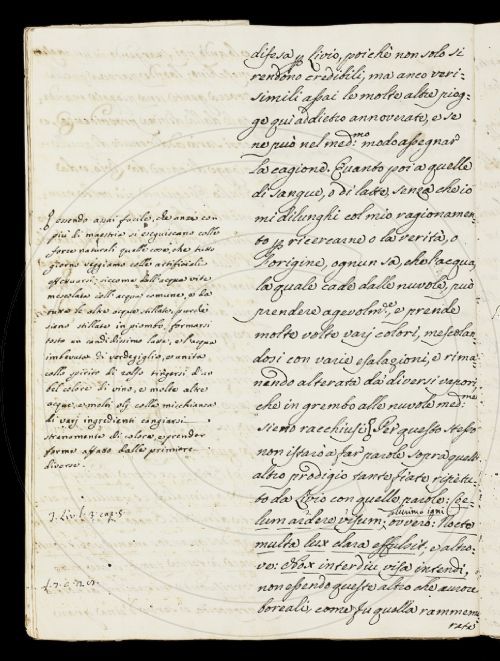 difesa p Livio, poichè non solo si
rendono credibili, ma anco veri-
simili assai le molte altre piog-
ge qui addietro annoverate, e se
ne può nel med:mo modo assegnar
la cagione. Quanto poi a quelle
di sangue, o di latte, senza che io
mi dilunghi col mio ragionamen-
to p ricercarne o la verità, o
l'origine, ognun sa, che l'acqua,
la quale cade dalle nuvole, può
prendere agevolm.te, e prende
molte volte varj colori, mescolan-
dosi con varie esalazioni, e rima-
nendo alterata da diversi vapori,
che in grembo alle nuvole med:me
sieno racchiusi. Per questo stesso
non istarò a far parole sopra quell'
altro prodigio tante fiate ripetu-
to da Livio con quelle parole: Coe-
lum ardere visum plurimo igni: ovvero: Nocte
multa lux clara effulsit, e altro-
ve: Nox interdiu visa intendi,
non essendo queste altro che aurore
boreali, come fu quella rammemo-
rata
Essendo assai facile, che anzi con
più di maestria si eseguiscano colle
forze naturali quelle cose, che tutto
giorno veggiamo colle artificiali
effettuarsi; siccome dall'acqua vite
mescolata coll'acqua comune, e da
tutte le altre acque stillate, purchè
siano stillate in piombo, formarsi
tosto un candidissimo latte, e l'acqua
imbevuta di verdegiglio, ed unita
collo spirito di zolfo tingersi d'un
bel colore di vino, e molte altre
acque, e molti olj colla mischianza
di varj ingredienti cangiarsi
stranamente di colore, e prender
forme affatto dalle primiere
diverse.
3. Liv. l. 3. cap. 5
l. 7. c. 28.